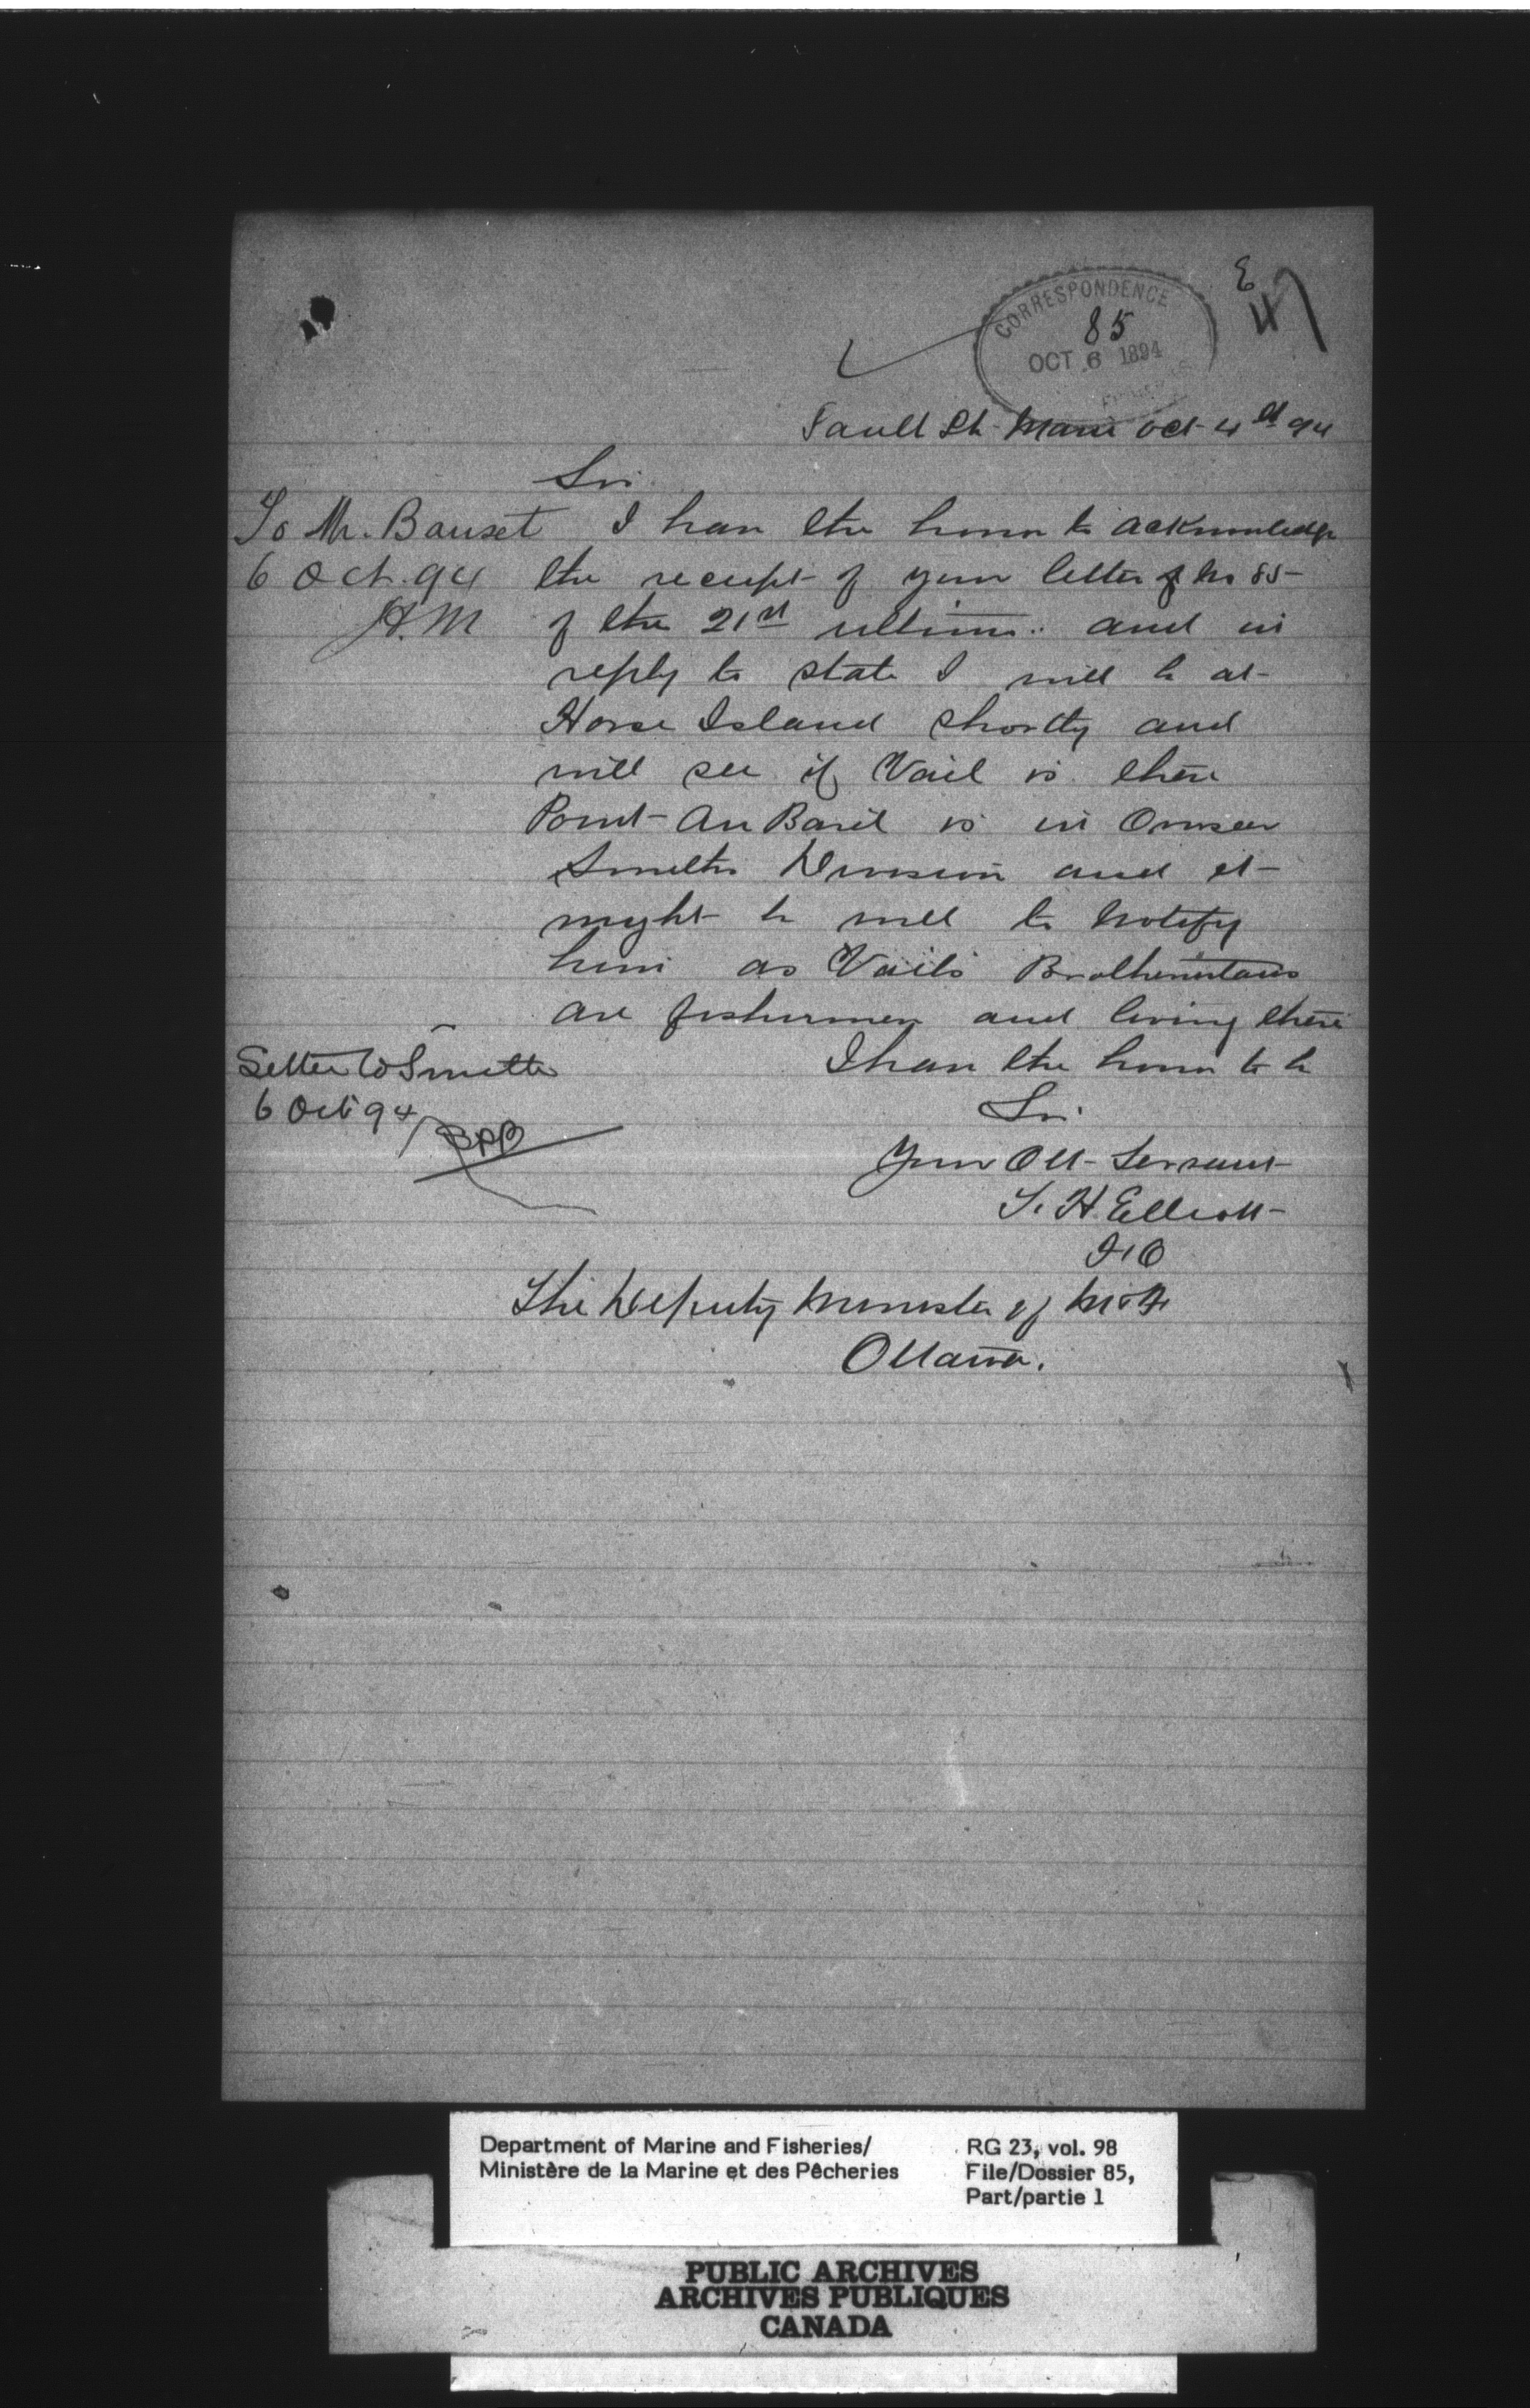 E
47
CORRESPONDENCE
85
OCT 6 1894
Sault Ste Marie Oct 4th 94
Sir
To Mr. Bauset
6 Oct. 94
H.M
I have the honor to acknowledge
the receipt of your letter No 85
of the 21st ultimo. and in
reply to state I will be at
Horse Island shortly and
will see if Vail is there
Point Au Baril is in Overseer
Smiths Division and it
might be well to notify
him as Vails Brotherinlaws
are fishermen and living there
Letter to Smith
6 Oct 94
BPB
I have the honor to be
Sir
Your Obt Servant
T. H. Elliott
F.O
The Deputy Minister of M & F
Ottawa.
Department of Marine and Fisheries/
Ministère de la Marine et des Pêcheries
RG 23, vol. 98
File/Dossier 85,
Part/partie 1
PUBLIC ARCHIVES
ARCHIVES PUBLIQUES
CANADA